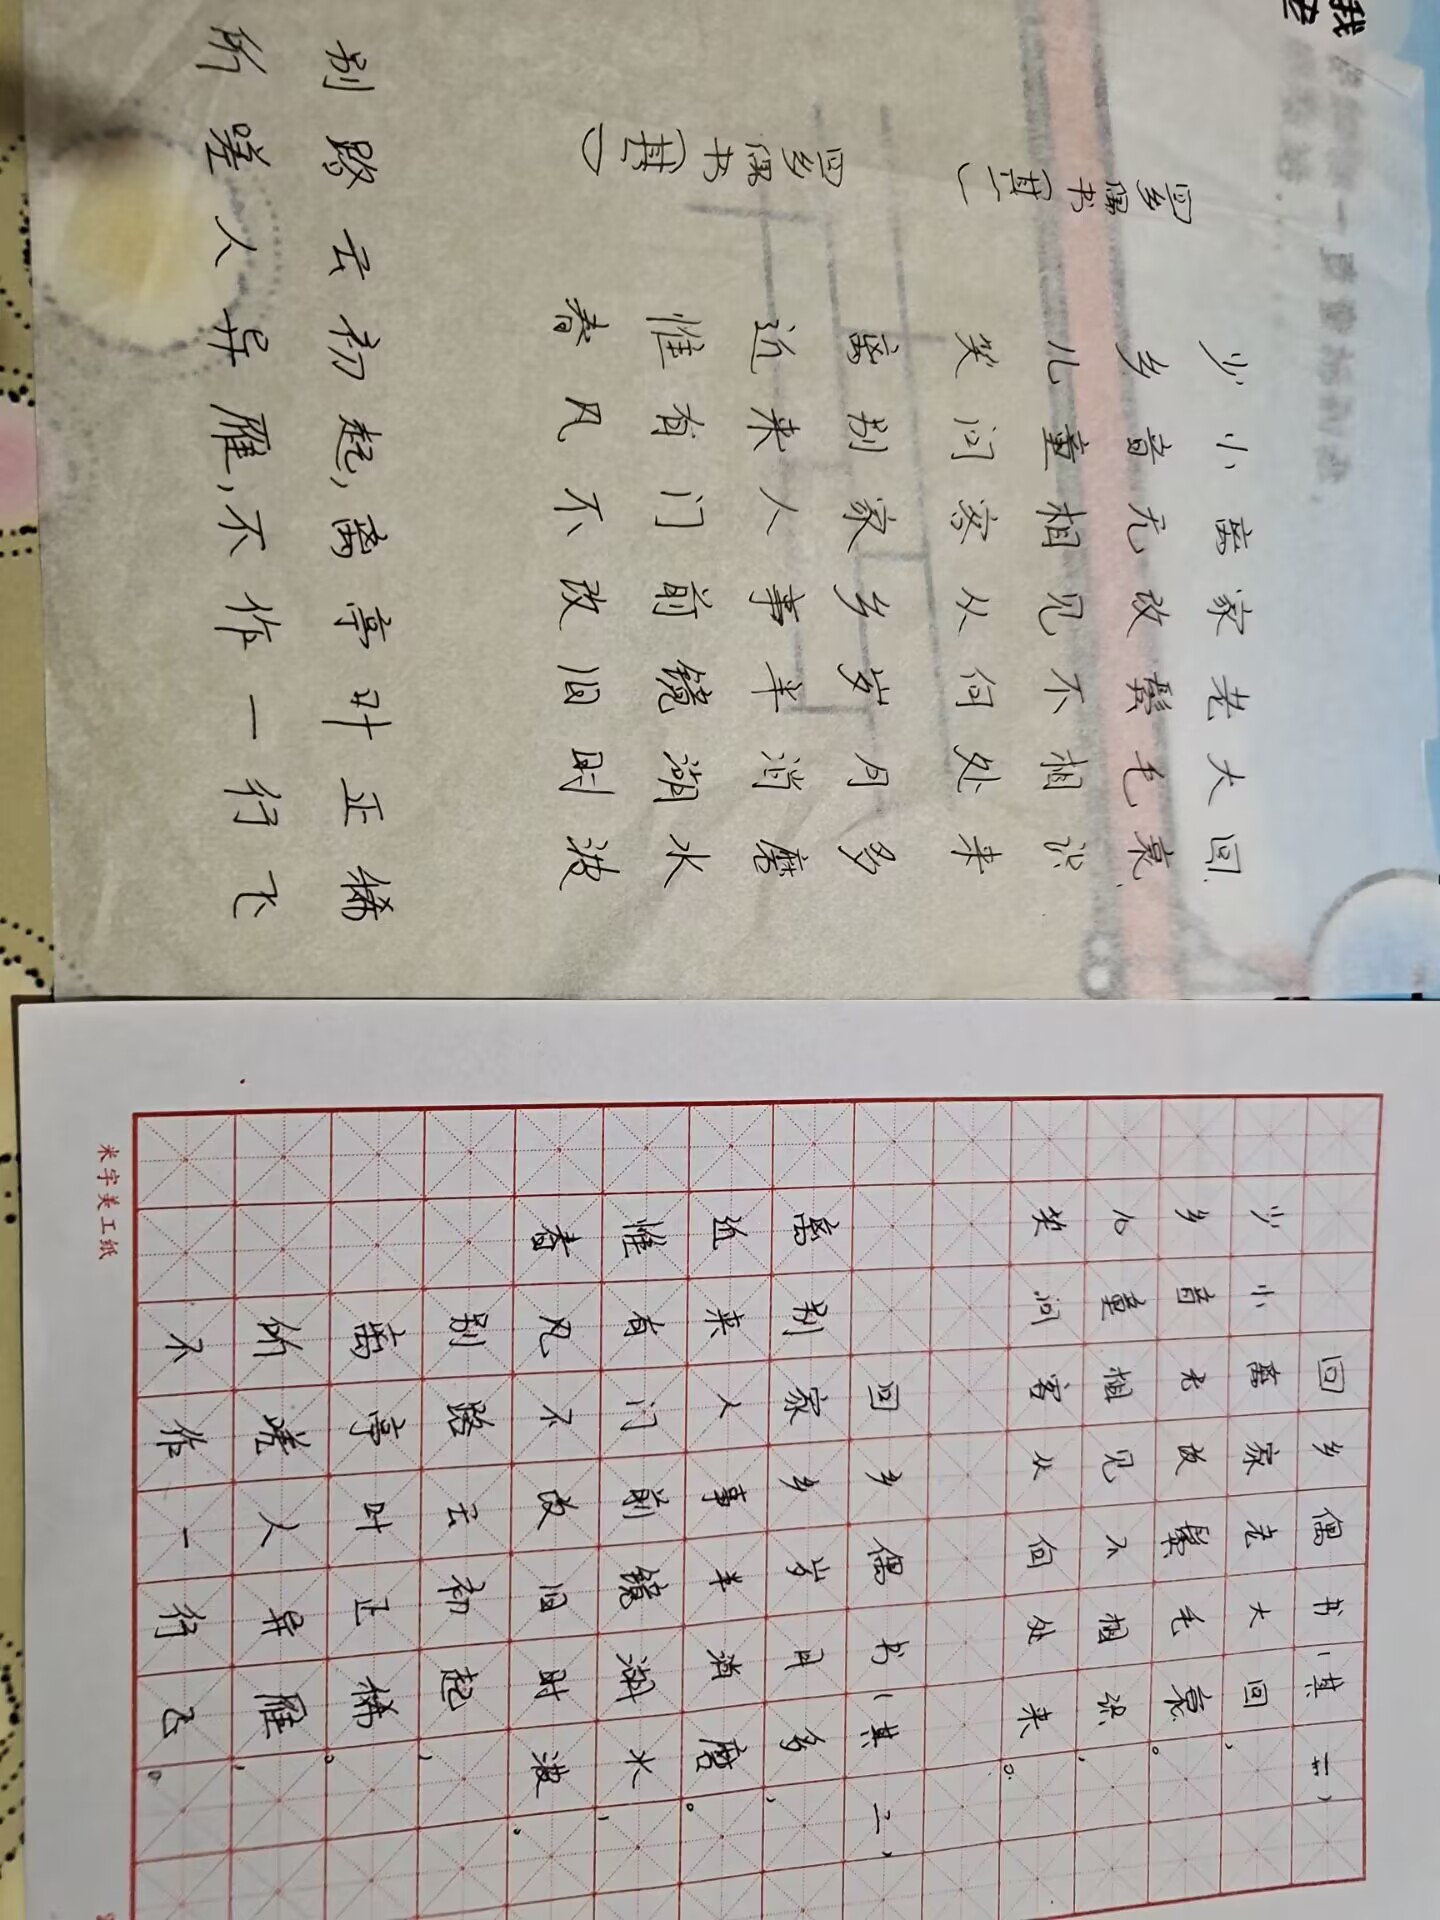 我
回乡偶书(其一)
少小离家老大回.
乡音无改鬓毛衰.
儿童相见不相识
笑问客从何处来
回乡偶书(其二)
离别家乡岁月多
近来人事半消磨
惟有门前镜湖水
春风不改旧时波
别路云初起,离亭叶正稀
所嗟人异雁,不作一行飞
回乡偶书(其一)
少小离家老大回,
乡音无改鬓毛衰。
儿童相见不相识,
笑问客从何处来。
回乡偶书(其二)
离别家乡岁月多,
近来人事半消磨。
惟有门前镜湖水,
春风不改旧时波。
别路云初起,
离亭叶正稀。
所嗟人异雁,
不作一行飞。
米字美工纸